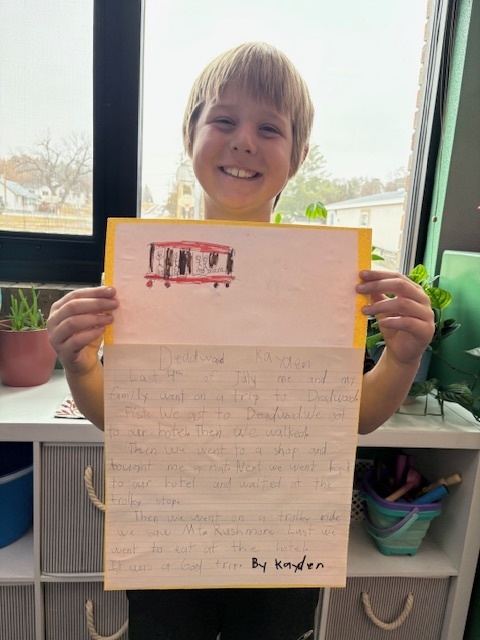 Deddwood Kayden
Last 4th of July me and my
family went on a trip to Dedwood
We got to Deadwood We sat
to our hotel. Then we walked.
Then we went to a shop and
bought me a
Next we went back
to our hotel and waited at the
trolley stop.
Then we went on a trolley ride
we saw Mt. Rushmore Last we
went to eat at the hotel.
It was a Good trip. By Kayden